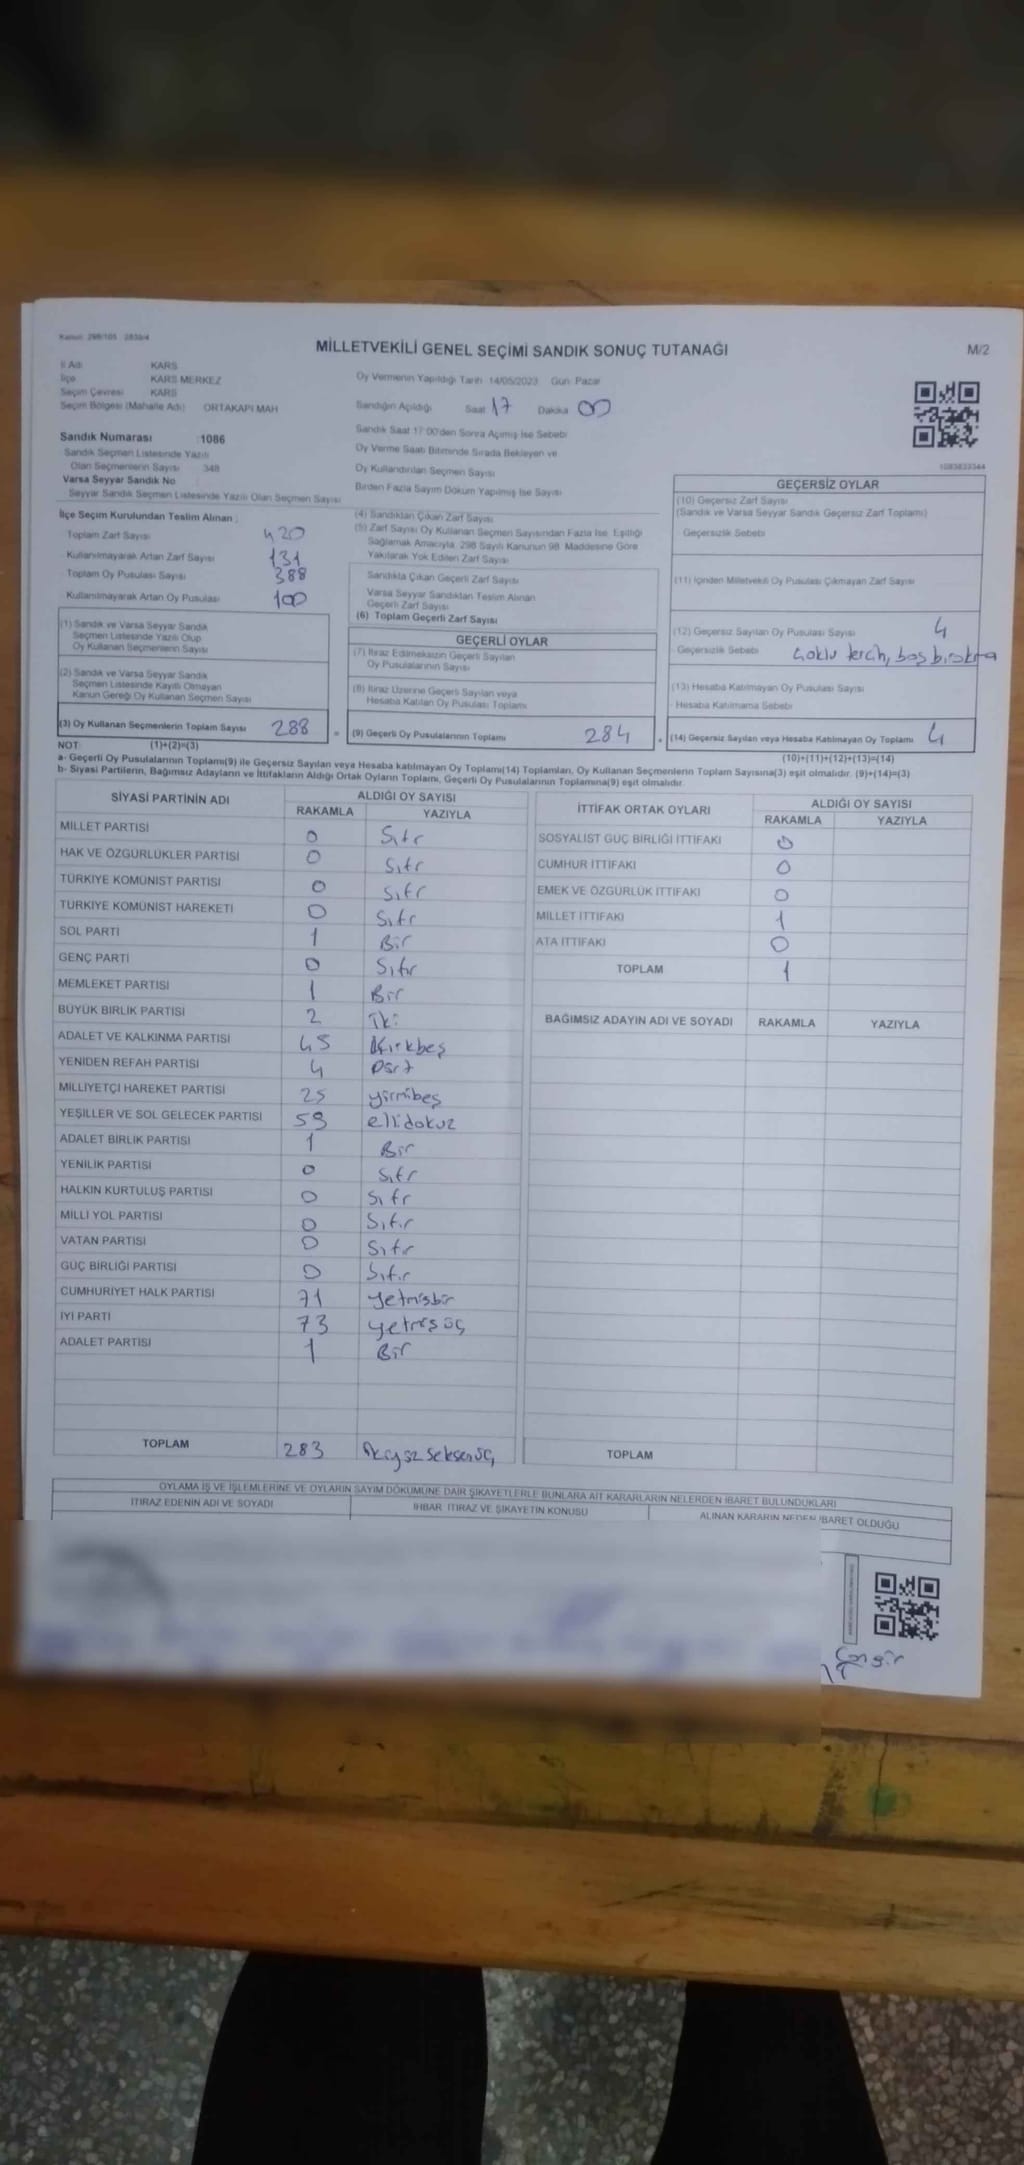 Kanun: 298/105 2839/4
MİLLETVEKİLİ GENEL SEÇİMİ SANDIK SONUÇ TUTANAĞI
M/2
İl Adı KARS
İlçe KARS MERKEZ
Seçim Çevresi KARS
Seçim Bölgesi (Mahalle Adı) ORTAKAPI MAH
Oy Vermenin Yapıldığı Tarih 14/05/2023 Gün: Pazar
Sandığın Açıldığı Saat 17 Dakika 00
Sandık Saat 17:00'den Sonra Açılmış İse Sebebi
Oy Verme Saati Bitiminde Sırada Bekleyen ve
Oy Kullandırılan Seçmen Sayısı
Birden Fazla Sayım Döküm Yapılmış İse Sayısı
1083833344
Sandık Numarası :1086
Sandık Seçmen Listesinde Yazılı
Olan Seçmenlerin Sayısı 348
Varsa Seyyar Sandık No
Seyyar Sandık Seçmen Listesinde Yazılı Olan Seçmen Sayısı
İlçe Seçim Kurulundan Teslim Alınan :
Toplam Zarf Sayısı 420
Kullanılmayarak Artan Zarf Sayısı 131
Toplam Oy Pusulası Sayısı 388
Kullanılmayarak Artan Oy Pusulası 100
(1) Sandık ve Varsa Seyyar Sandık
Seçmen Listesinde Yazılı Olup
Oy Kullanan Seçmenlerin Sayısı
(2) Sandık ve Varsa Seyyar Sandık
Seçmen Listesinde Kayıtlı Olmayan
Kanun Gereği Oy Kullanan Seçmen Sayısı
(3) Oy Kullanan Seçmenlerin Toplam Sayısı 288
(4) Sandıktan Çıkan Zarf Sayısı
(5) Zarf Sayısı Oy Kullanan Seçmen Sayısından Fazla İse, Eşitliği
Sağlamak Amacıyla, 298 Sayılı Kanunun 98. Maddesine Göre
Yakılarak Yok Edilen Zarf Sayısı
Sandıkta Çıkan Geçerli Zarf Sayısı
Varsa Seyyar Sandıktan Teslim Alınan
Geçerli Zarf Sayısı
(6) Toplam Geçerli Zarf Sayısı
GEÇERLİ OYLAR
(7) İtiraz Edilmeksizin Geçerli Sayılan
Oy Pusulalarının Sayısı
(8) İtiraz Üzerine Geçerli Sayılan veya
Hesaba Katılan Oy Pusulası Toplamı
= (9) Geçerli Oy Pusulalarının Toplamı 284
GEÇERSİZ OYLAR
(10) Geçersiz Zarf Sayısı
(Sandık ve Varsa Seyyar Sandık Geçersiz Zarf Toplamı)
Geçersizlik Sebebi
(11) İçinden Milletvekili Oy Pusulası Çıkmayan Zarf Sayısı
(12) Geçersiz Sayılan Oy Pusulası Sayısı 4
Geçersizlik Sebebi çoklu tercih, boş bırakma
(13) Hesaba Katılmayan Oy Pusulası Sayısı
Hesaba Katılmama Sebebi
+ (14) Geçersiz Sayılan veya Hesaba Katılmayan Oy Toplamı 4
NOT: (1)+(2)=(3)
(10)+(11)+(12)+(13)=(14)
a- Geçerli Oy Pusulalarının Toplamı(9) ile Geçersiz Sayılan veya Hesaba katılmayan Oy Toplamı(14) Toplamları, Oy Kullanan Seçmenlerin Toplam Sayısına(3) eşit olmalıdır. (9)+(14)=(3)
b- Siyasi Partilerin, Bağımsız Adayların ve İttifakların Aldığı Ortak Oyların Toplamı, Geçerli Oy Pusulalarının Toplamına(9) eşit olmalıdır.
SİYASİ PARTİNİN ADI ALDIĞI OY SAYISI
RAKAMLA YAZIYLA
MİLLET PARTİSİ 0 Sıfır
HAK VE ÖZGÜRLÜKLER PARTİSİ 0 Sıfır
TÜRKİYE KOMÜNİST PARTİSİ 0 Sıfır
TÜRKİYE KOMÜNİST HAREKETİ 0 Sıfır
SOL PARTİ 1 Bir
GENÇ PARTİ 0 Sıfır
MEMLEKET PARTİSİ 1 Bir
BÜYÜK BİRLİK PARTİSİ 2 İki
ADALET VE KALKINMA PARTİSİ 45 Kırkbeş
YENİDEN REFAH PARTİSİ 4 Dört
MİLLİYETÇİ HAREKET PARTİSİ 25 yirmibeş
YEŞİLLER VE SOL GELECEK PARTİSİ 59 ellidokuz
ADALET BİRLİK PARTİSİ 1 Bir
YENİLİK PARTİSİ 0 Sıfır
HALKIN KURTULUŞ PARTİSİ 0 Sıfır
MİLLİ YOL PARTİSİ 0 Sıfır
VATAN PARTİSİ 0 Sıfır
GÜÇ BİRLİĞİ PARTİSİ 0 Sıfır
CUMHURİYET HALK PARTİSİ 71 yetmişbir
İYİ PARTİ 73 yetmişüç
ADALET PARTİSİ 1 Bir
TOPLAM 283 İkiyüz Seksenüç
İTTİFAK ORTAK OYLARI ALDIĞI OY SAYISI
RAKAMLA YAZIYLA
SOSYALİST GÜÇ BİRLİĞİ İTTİFAKI 0
CUMHUR İTTİFAKI 0
EMEK VE ÖZGÜRLÜK İTTİFAKI 0
MİLLET İTTİFAKI 1
ATA İTTİFAKI 0
TOPLAM 1
BAĞIMSIZ ADAYIN ADI VE SOYADI RAKAMLA YAZIYLA
TOPLAM
OYLAMA İŞ VE İŞLEMLERİNE VE OYLARIN SAYIM DÖKÜMÜNE DAİR ŞİKAYETLERLE BUNLARA AİT KARARLARIN NELERDEN İBARET BULUNDUKLARI
İTİRAZ EDENİN ADI VE SOYADI İHBAR, İTİRAZ VE ŞİKAYETİN KONUSU ALINAN KARARIN NEDEN İBARET OLDUĞU